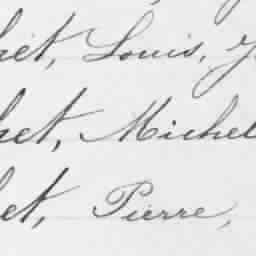 het, Louis, J
het, Michel
het, Pierre,